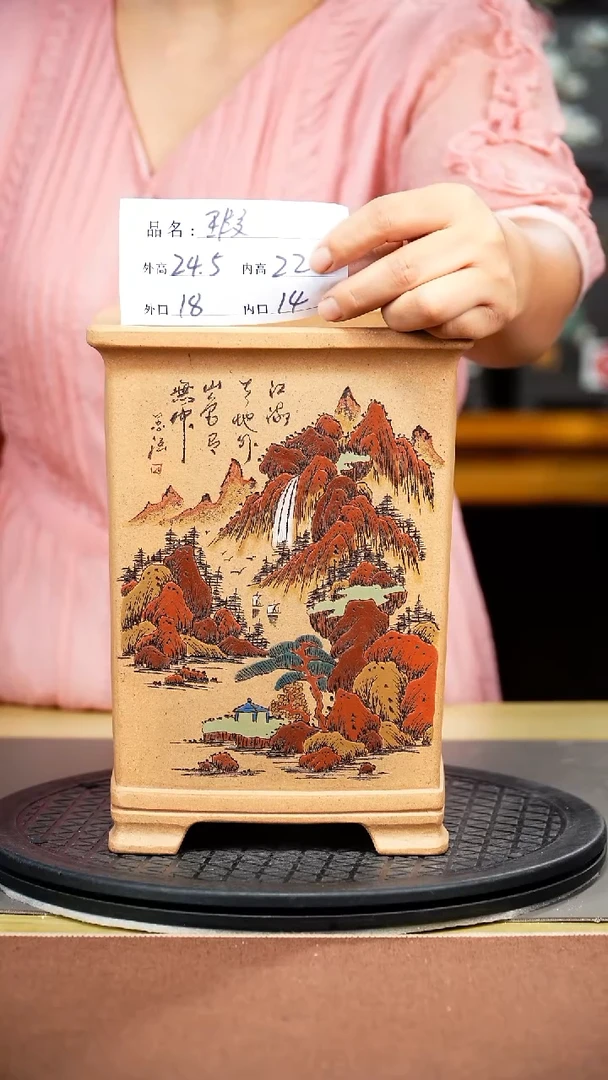 品名：
外高24.5 内高22
外口18 内口14
江流
天地外
山色有
無中